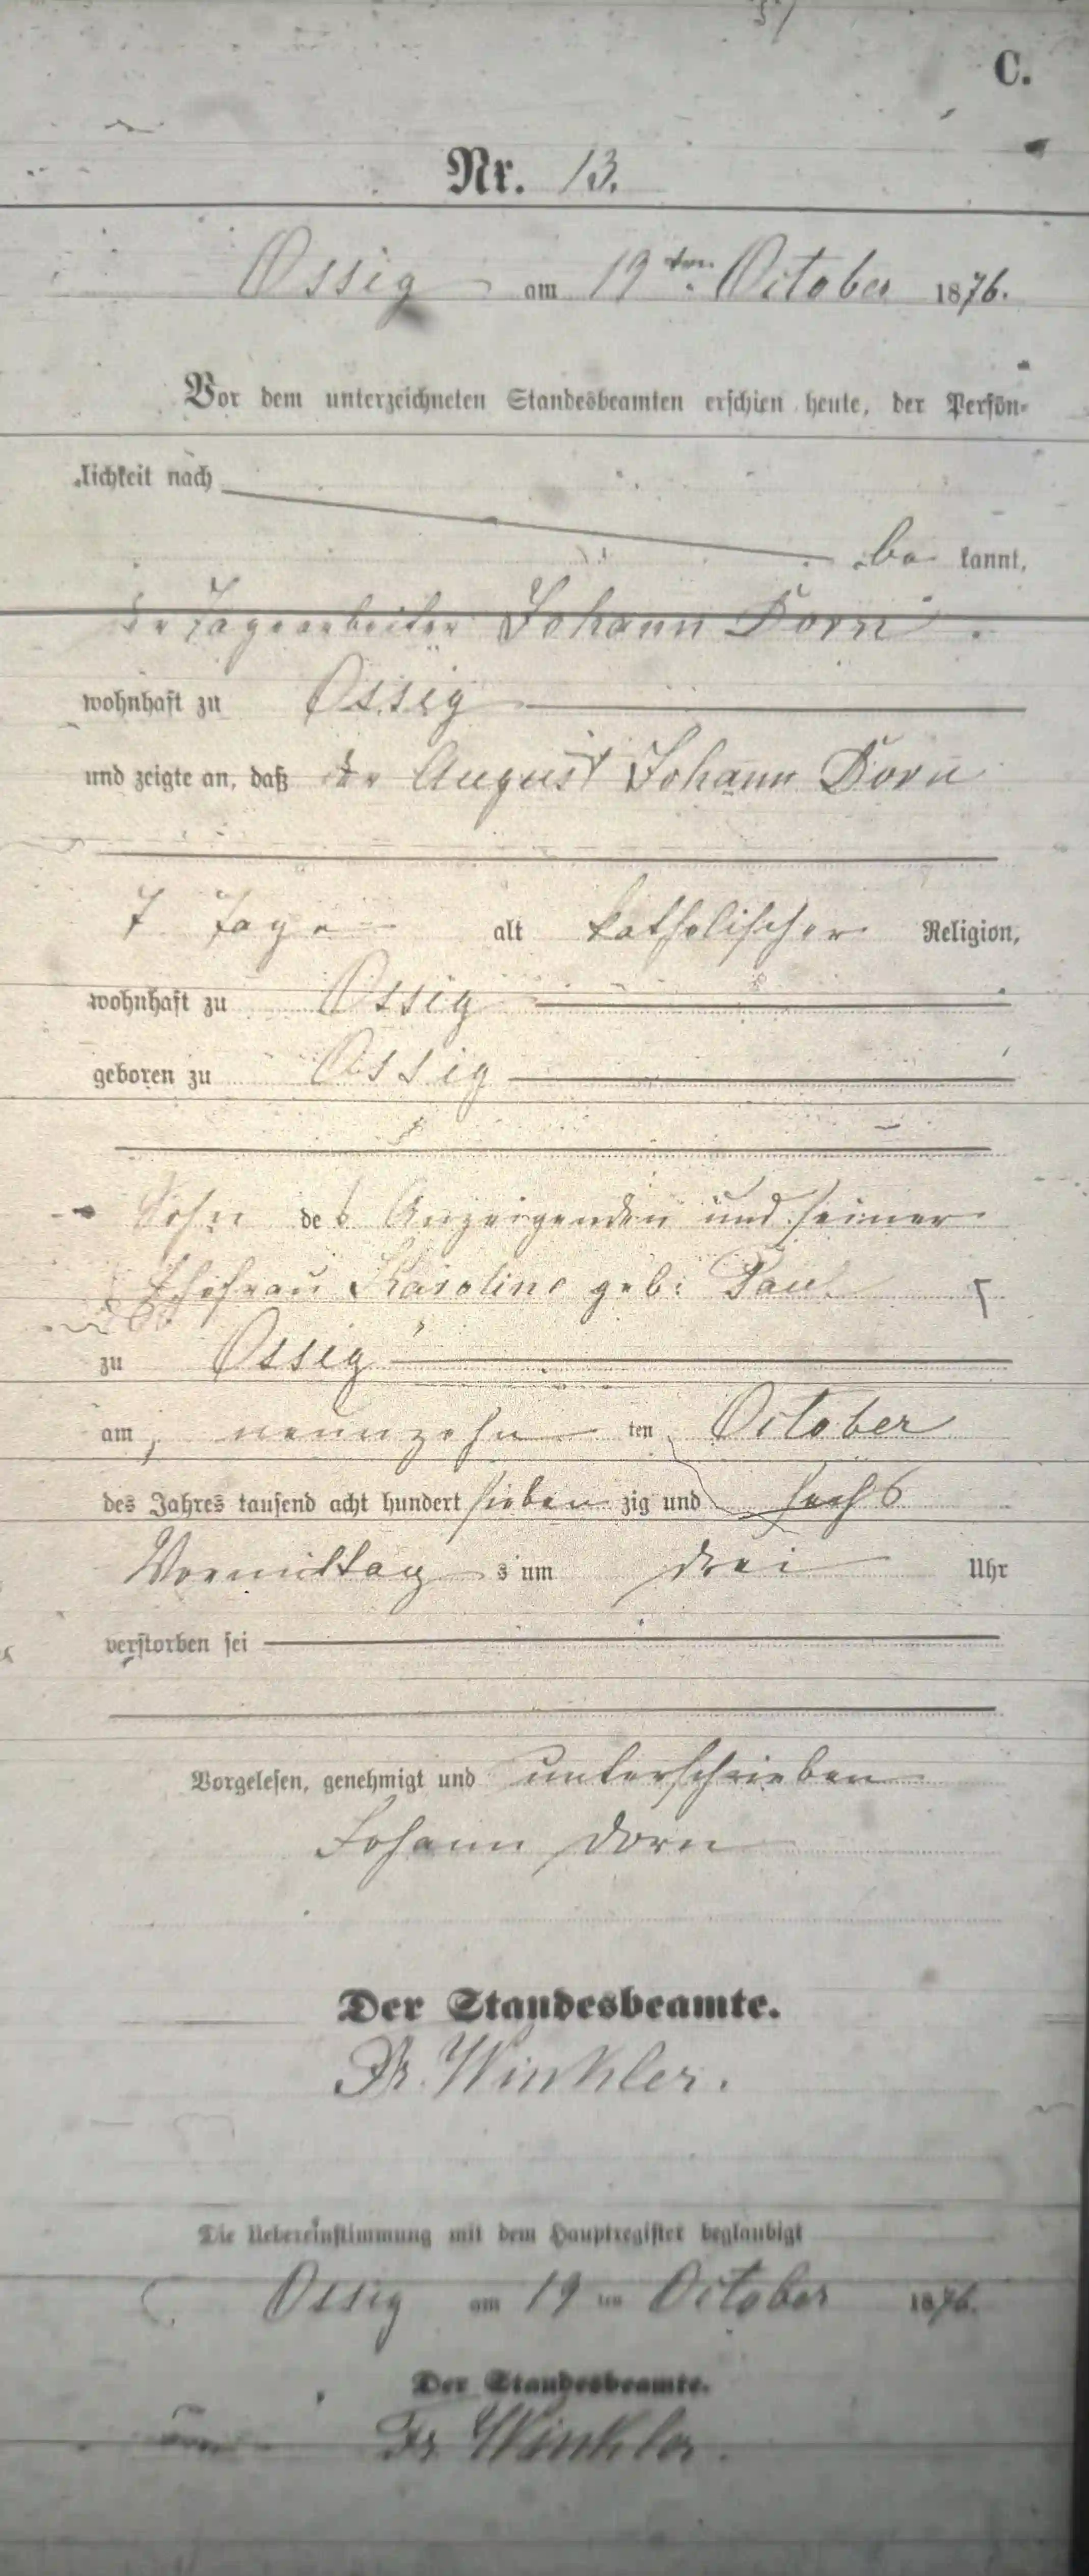 C.
Nr. 13.
Ossig am 19ten October 1876.
Vor dem unterzeichneten Standesbeamten erschien heute, der Persön-
lichkeit nach
be kannt,
der Tagearbeiter Johann Dorn
wohnhaft zu Ossig
und zeigte an, daß der August Johann Dorn
7 Tage alt katholischer Religion,
wohnhaft zu Ossig
geboren zu Ossig
Sohn des Anzeigenden und seiner
Ehefrau Karoline geb: Paul
zu Ossig
am neunzehn ten October
des Jahres tausend acht hundert sieben zig und sechs
Vormittag s um drei Uhr
verstorben sei
Vorgelesen, genehmigt und unterschrieben
Johann Dorn
Der Standesbeamte.
Fr. Winkler.
Die Uebereinstimmung mit dem Hauptregister beglaubigt
Ossig am 19 ten October 1876.
Der Standesbeamte.
Fr. Winkler.